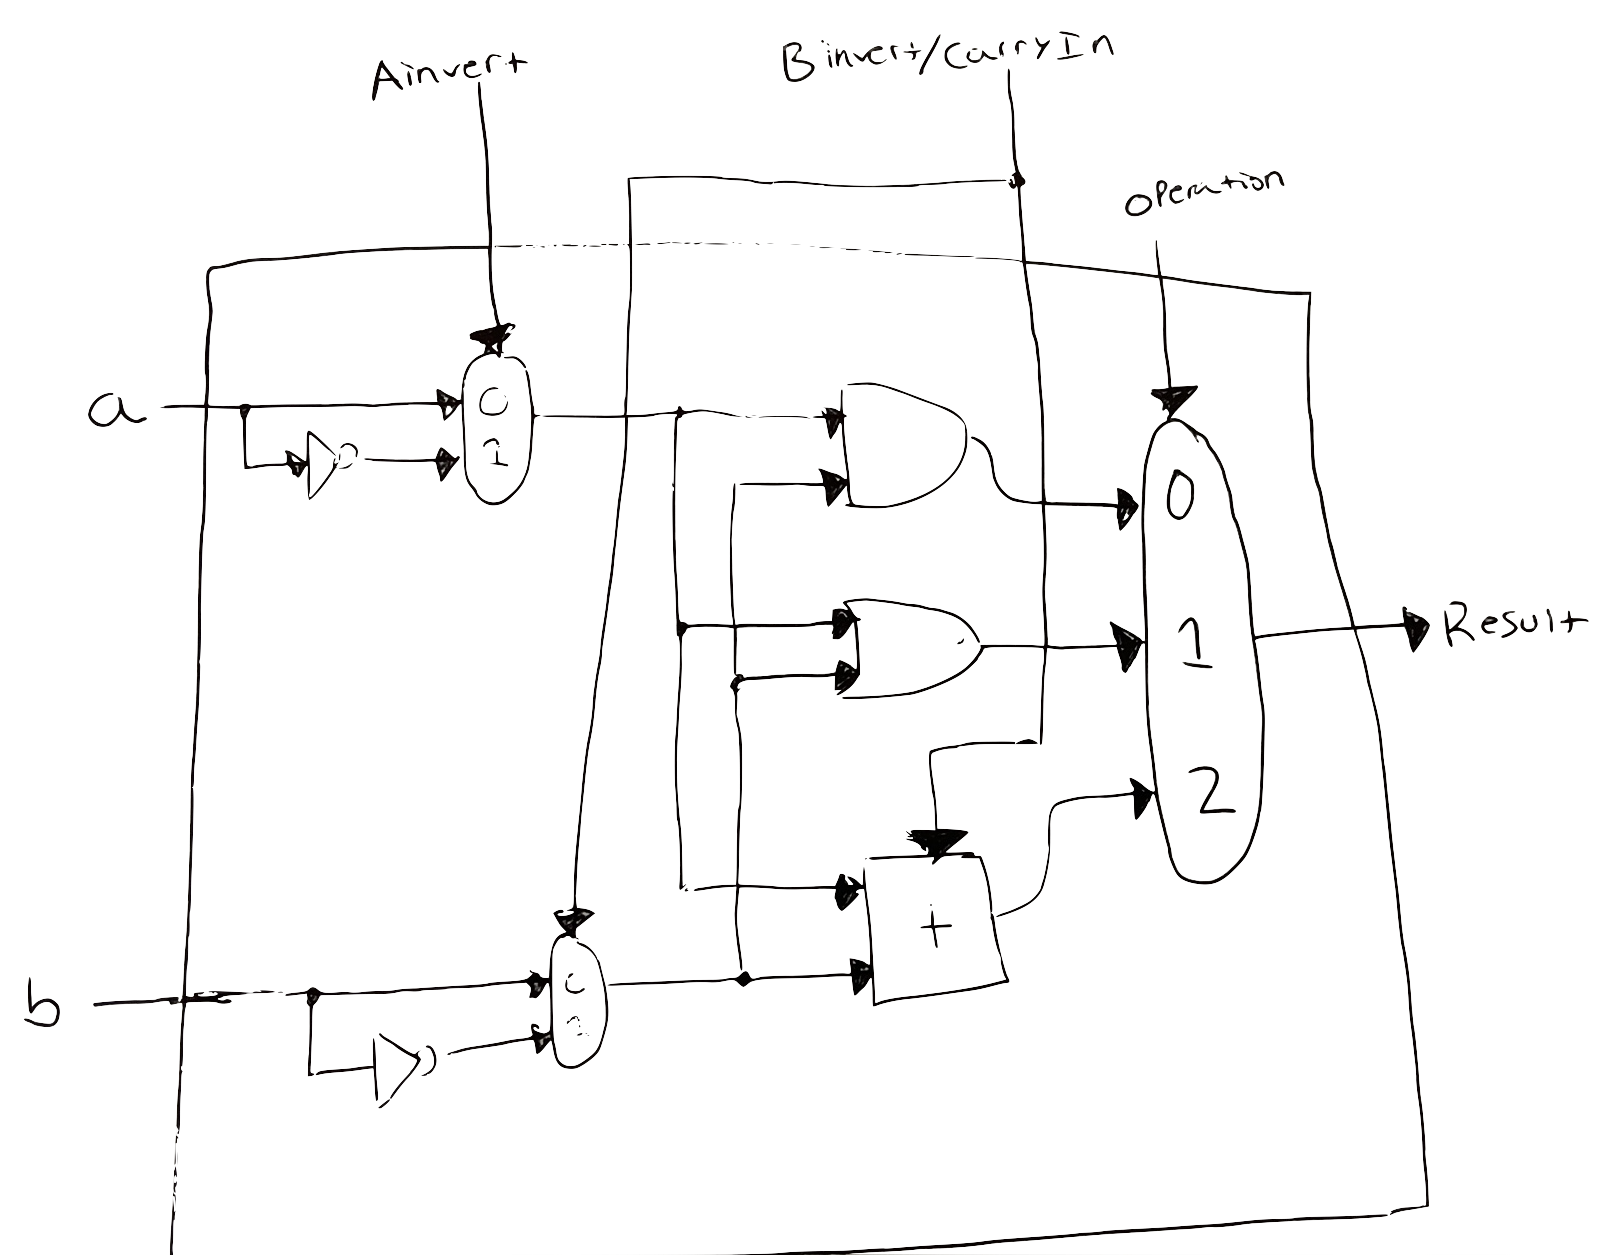 Ainvert
Binvert/CarryIn
operation
a
0
1
0
1
Result
2
+
b